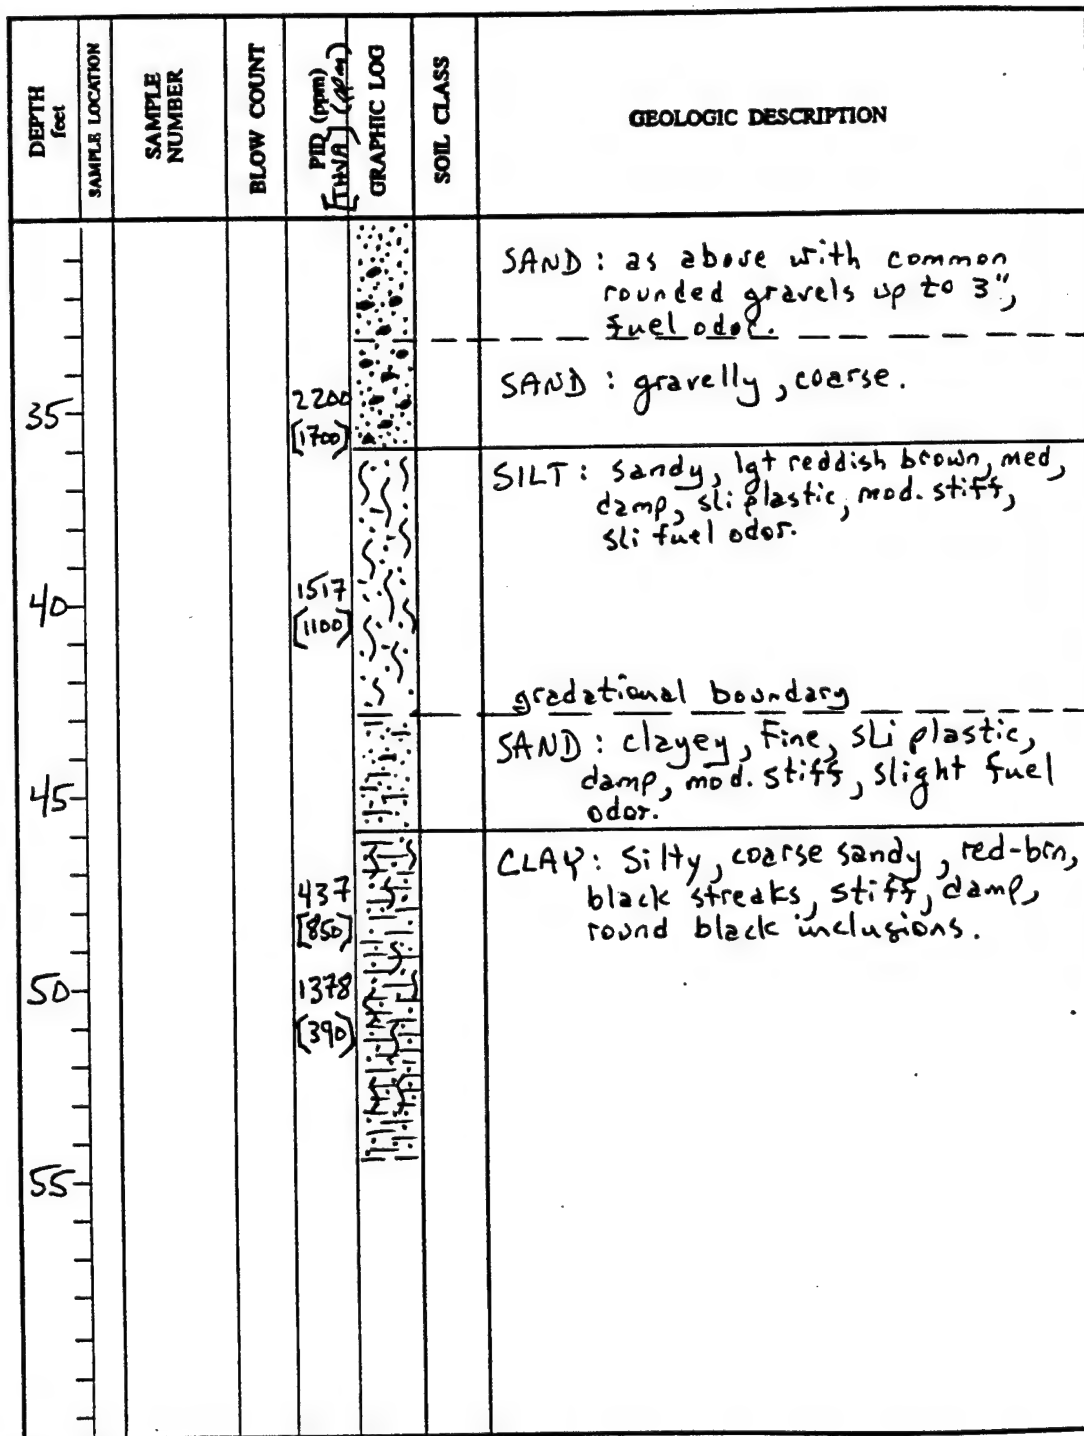 DEPTH
feet
SAMPLE LOCATION
SAMPLE
NUMBER
BLOW COUNT
PID (ppm)
[THVA] (ppm)
GRAPHIC LOG
SOIL CLASS
GEOLOGIC DESCRIPTION
SAND : as above with common
rounded gravels up to 3",
fuel odor.
SAND : gravelly, coarse.
35
2200
[1700]
SILT : Sandy, lgt reddish brown, med,
damp, sli plastic, mod. stiff,
sli fuel odor.
40
1517
[1100]
gradational boundary
SAND : clayey, Fine, sli plastic,
damp, mod. stiff, slight fuel
odor.
45
CLAY: Silty, coarse sandy, red-brn,
black streaks, stiff, damp,
round black inclusions.
437
[850]
50
1378
[390]
55